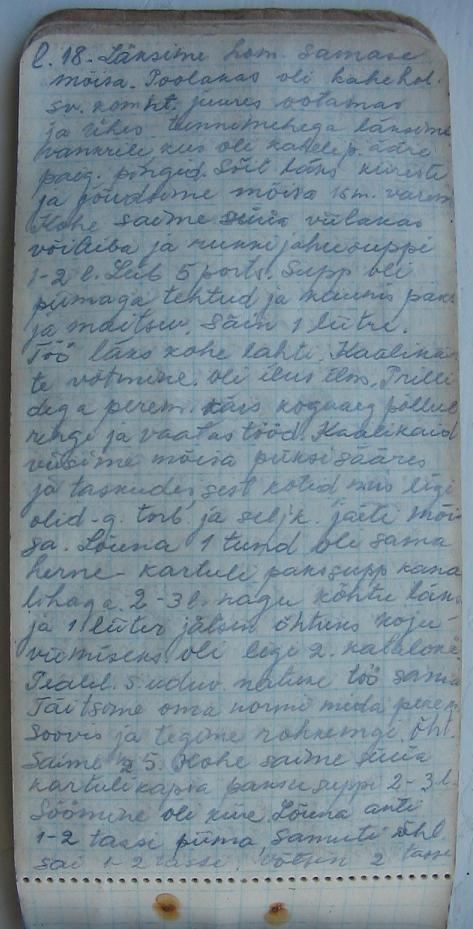 l. 18. Läksime hom. samase
mõisa. Poolakas oli kahehob.
juures ootamas
ja ühes tunnimehega läksime
vankrile kus oli kahelp. ääre
pingid. Sõit läks kiiresti
ja jõudsime mõisa varem
Kohe saime süüa viilakas
võiluba ja rukkijahusuppi
1-2 l. Leib 5 ports. Supp oli
piimaga tehtud ja kaunis paks
ja maitsev. Sain 1 liitri.
Töö läks kohe lahti. Kaalika-
te võtmine. oli ilus ilm. Prilli
dega perem. käis koguaeg põllul
ringi ja vaatas tööd. Kaalikaid
viisime mõisa püksisääres
ja taskudes, sest kotid mis ligi
olid - g. torb. ja seljk. jäeti mõi
sa. Lõuna 1 tund oli sama
herne - kartuli paks supp kana
lihaga. 2-3 l. nagu kõhtu läks
ja 1 liiter jätsin õhtuks koju-
viimiseks. oli ligi 2.
Pealel. töö sama
Täitsime oma normi mida perem
soovis ja tegime rohkemgi. Õht.
saime 5. Kohe saime süüa
kartuli kapsa paksu suppi 2-3 l.
Söömine oli kiire. Lõuna anti
1-2 tassi piima, samuti õhl
sai 1-2 tassi. Võtsin 2 tassi